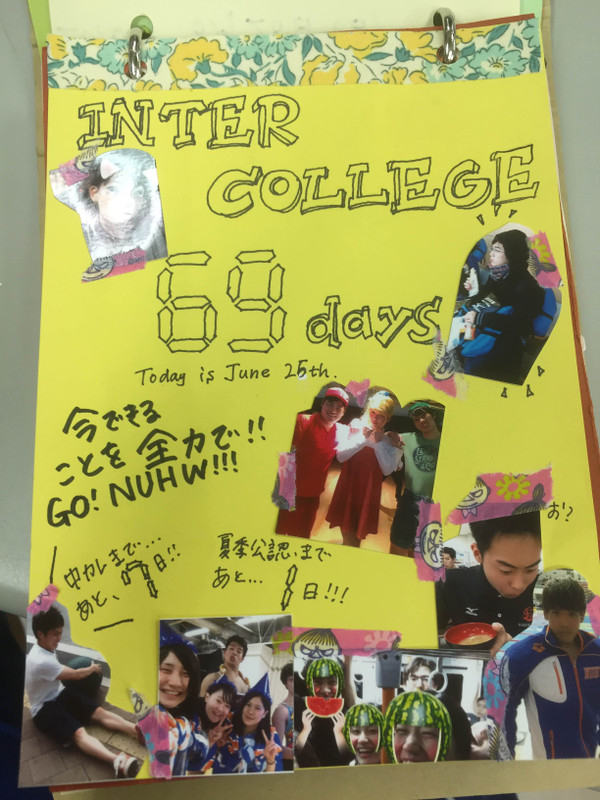 INTER
COLLEGE
69 days
Today is June 25th.
今できる
ことを全力で!!
GO! NUHW!!!
中カレまで...
あと、7日!!
夏季公認まで
あと... 1日!!!
お!?